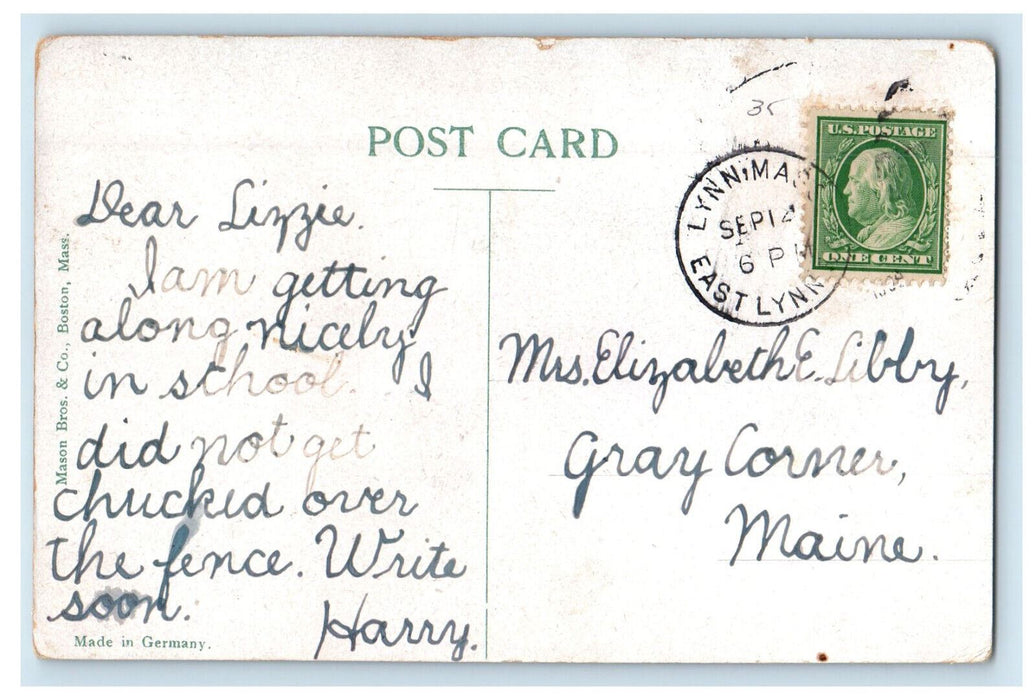 POST CARD
U.S. POSTAGE
ONE CENT
LYNN, MASS
SEP 14
6 P M
EAST LYNN
Dear Lizzie.
I am getting
along nicely
in school. I
did not get
chucked over
the fence. Write
soon.
Harry.
Mrs. Elizabeth E. Libby,
Gray Corner,
Maine.
Mason Bros. & Co., Boston, Mass.
Made in Germany.